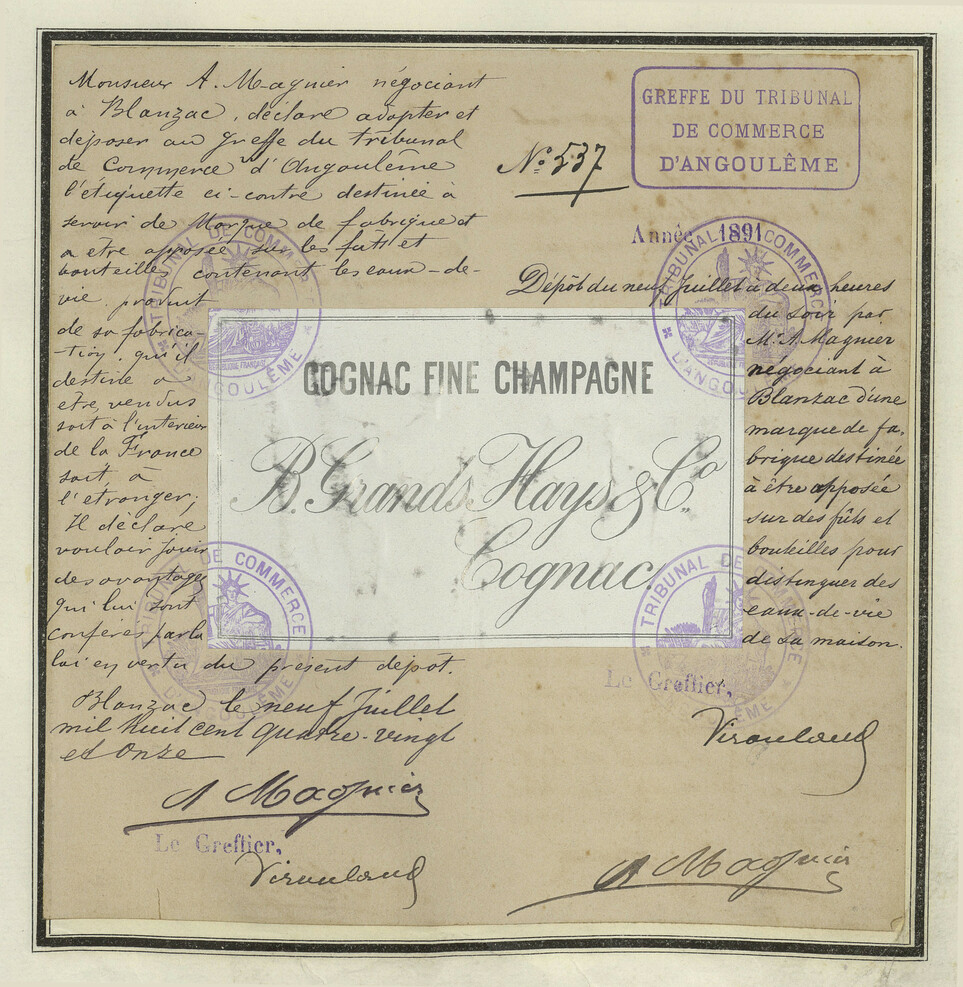 Monsieur A. Magnier négociant
à Blanzac, déclare adopter et
déposer au greffe du tribunal
de Commerce d'Angoulême
l'étiquette ci-contre destinée à
servir de Marque de fabrique et
a être apposée sur les futs et
bouteilles contenant les eaux-de-
vie, produit
de sa fabrica-
tion, qu'il
destine a
etre vendus
soit à l'intérieur
de la France
soit, à
l'étranger;
Il déclare
vouloir jouir
des avantages
qui lui sont
conférés par la
loi en vertu du présent dépôt.
Blanzac le neuf Juillet
mil huit cent quatre-vingt
et onze
A Magnier
Le Greffier,
Virouland
N° 537
GREFFE DU TRIBUNAL
DE COMMERCE
D'ANGOULÊME
Année 1891
Dépôt du neuf Juillet à deux heures
du soir par
Mr A. Magnier
négociant à
Blanzac d'une
marque de fa-
brique destinée
à être apposée
sur des fûts et
bouteilles pour
distinguer des
eaux-de-vie
de sa maison.
Le Greffier,
Virouland
A Magnier
COGNAC FINE CHAMPAGNE
B. Grands Hays & Co.
Cognac.
TRIBUNAL DE COMMERCE
D'ANGOULÊME
RÉPUBLIQUE FRANÇAISE
TRIBUNAL DE COMMERCE
D'ANGOULÊME
TRIBUNAL DE COMMERCE
D'ANGOULÊME
TRIBUNAL DE COMMERCE
D'ANGOULÊME